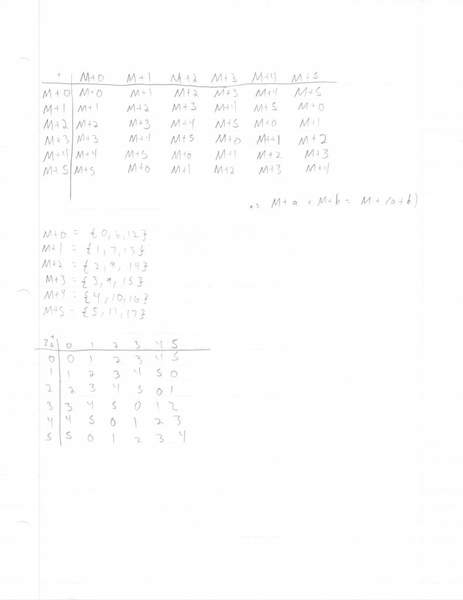 + M+0 M+1 M+2 M+3 M+4 M+5
M+0 M+0 M+1 M+2 M+3 M+4 M+5
M+1 M+1 M+2 M+3 M+4 M+5 M+0
M+2 M+2 M+3 M+4 M+5 M+0 M+1
M+3 M+3 M+4 M+5 M+0 M+1 M+2
M+4 M+4 M+5 M+0 M+1 M+2 M+3
M+5 M+5 M+0 M+1 M+2 M+3 M+4
M+a + M+b = M+(a+b)
M+0 = {0,6,12}
M+1 = {1,7,13}
M+2 = {2,8,14}
M+3 = {3,9,15}
M+4 = {4,10,16}
M+5 = {5,11,17}
0 1 2 3 4 5
0 0 1 2 3 4 5
1 1 2 3 4 5 0
2 2 3 4 5 0 1
3 3 4 5 0 1 2
4 4 5 0 1 2 3
5 5 0 1 2 3 4